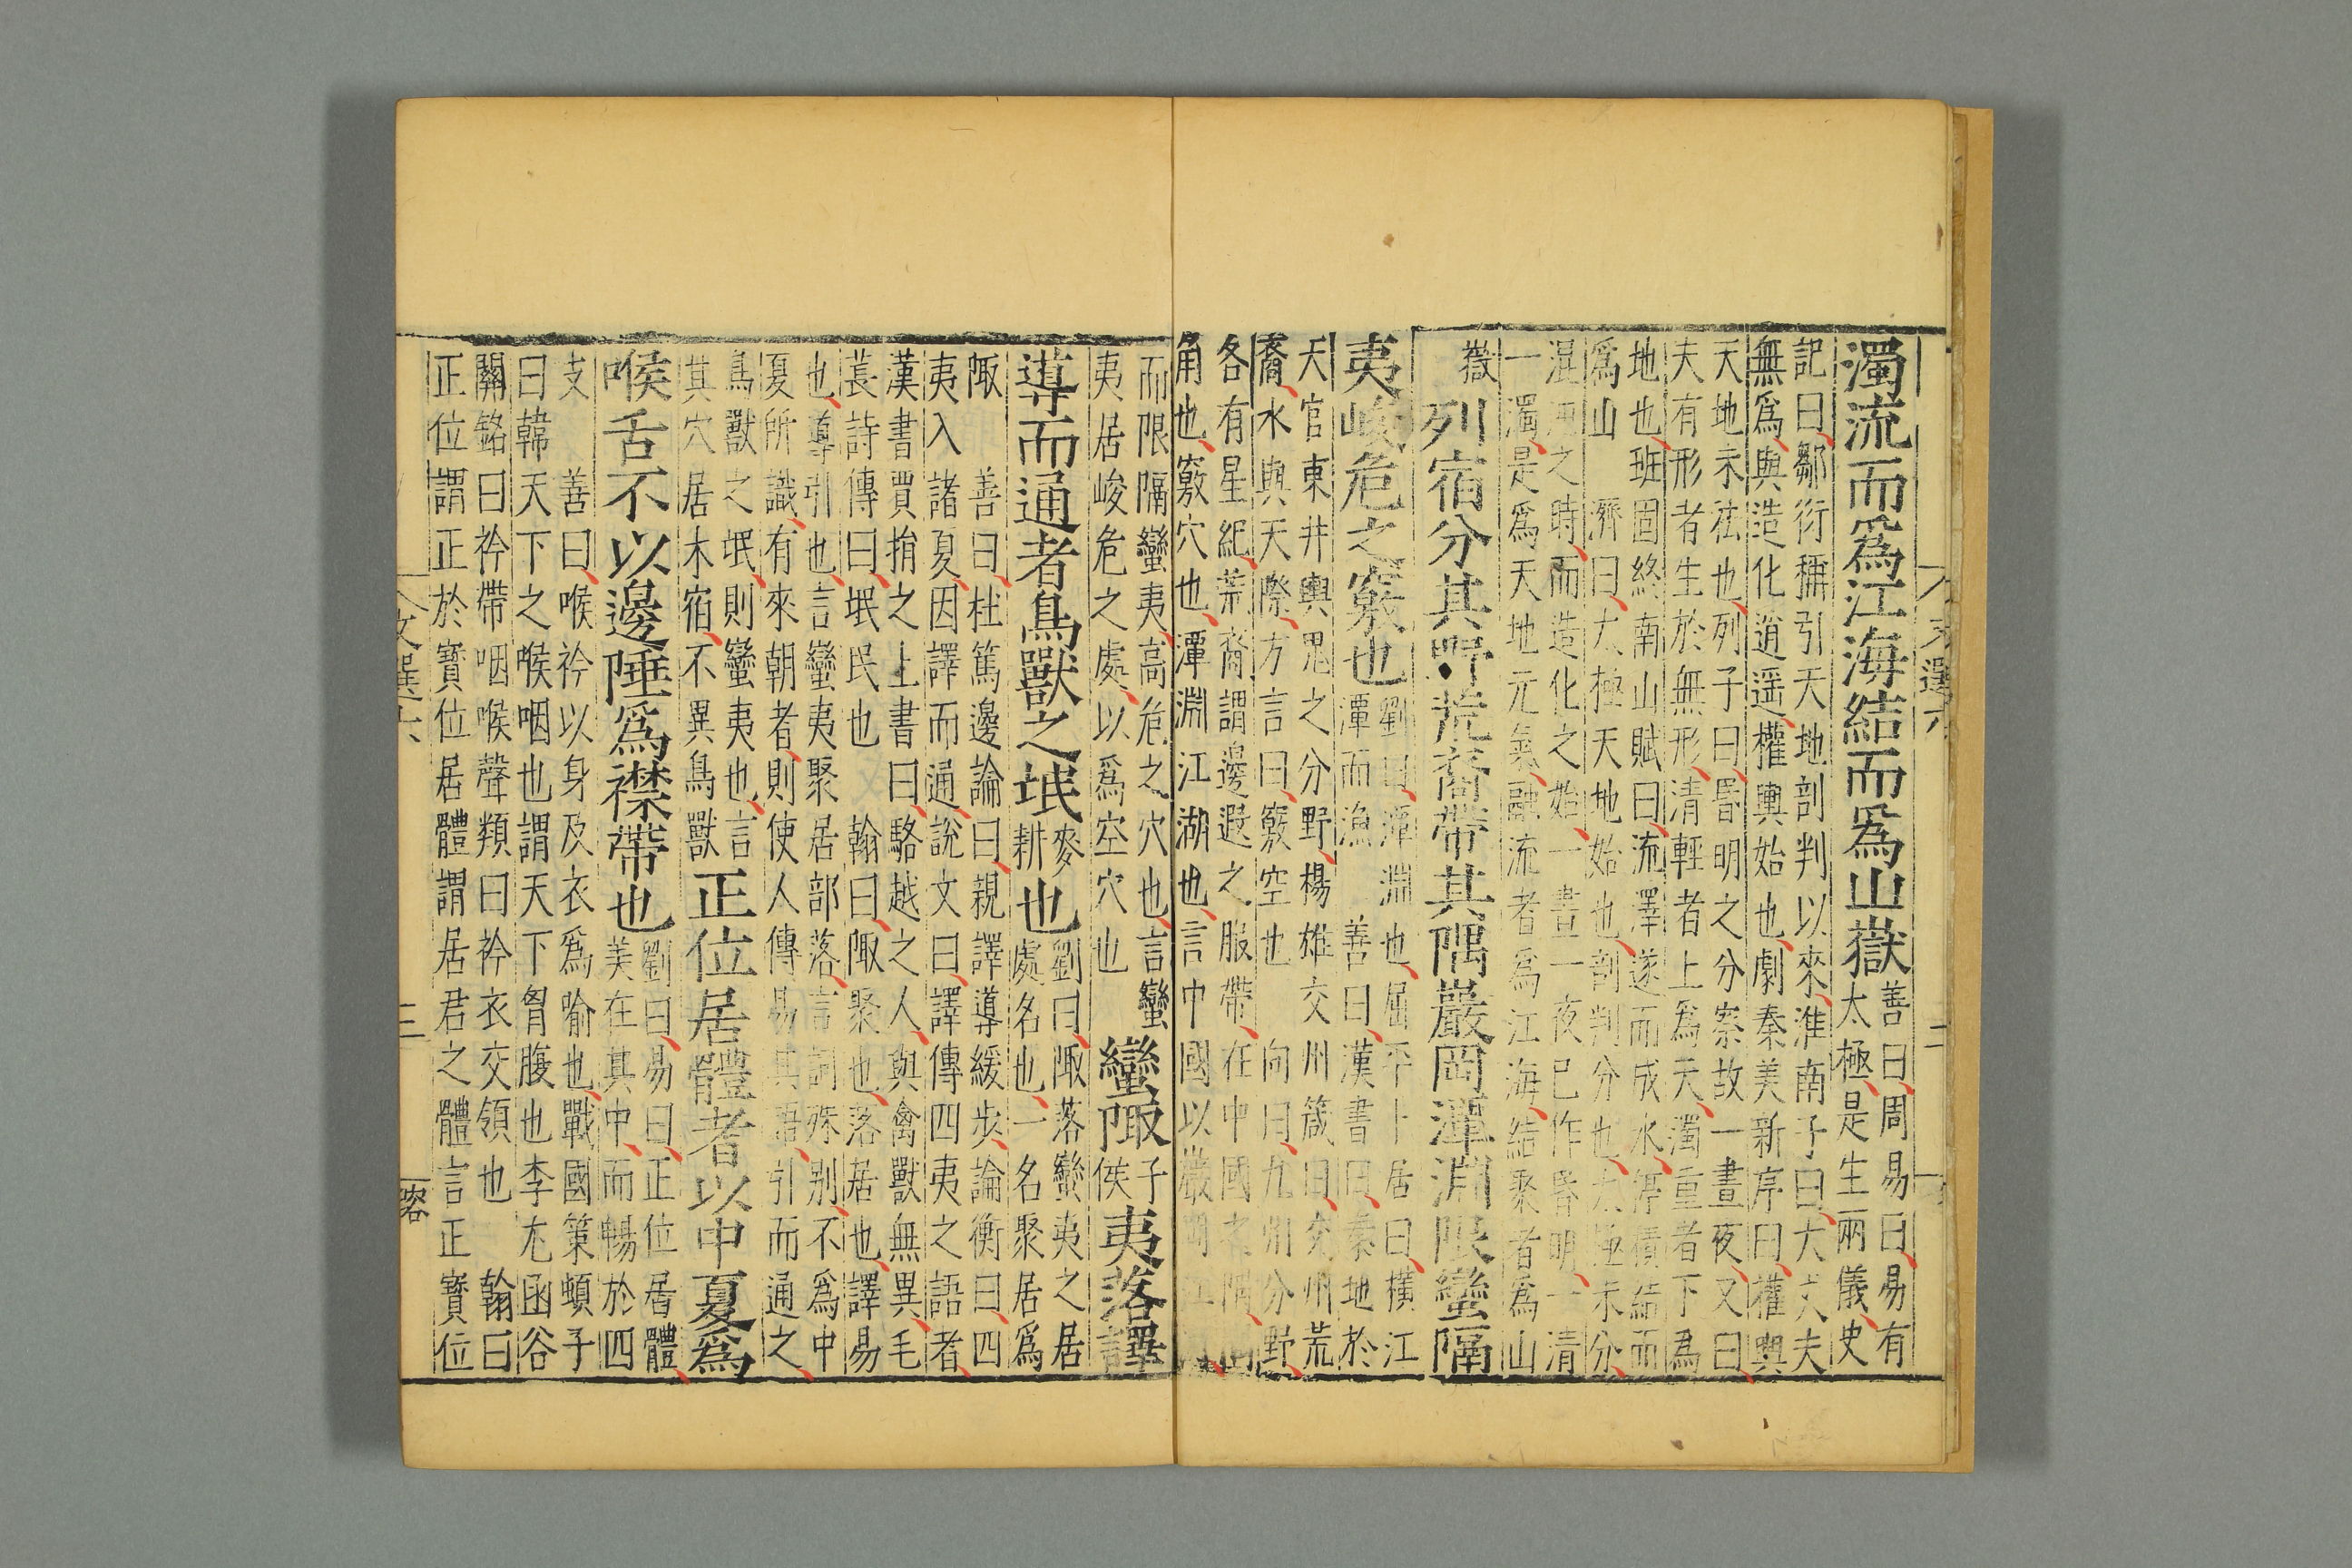 濁流而爲江海結而爲山嶽善曰周易曰易有
太極是生兩儀史
記曰鄒衍稱引天地剖判以來淮南子曰大丈夫
無爲與造化逍遥權輿始也劇秦美新序曰權輿
天地未祛也列子曰昬明之分察故一晝夜又曰
夫有形者生於無形清輕者上爲天濁重者下為
地也班固終南山賦曰流澤遂而成水渟積結而
爲山 濟曰太極天地始也剖判分也太極未分
混沌之時而造化之始一晝一夜已作昬明一清
一濁是爲天地元氣融流者爲江海結聚者爲山
嶽
列宿分其野荒裔帶其隅巖岡潭淵限蠻隔
夷峻危之竅也劉曰潭淵也屈平卜居曰橫江
潭而漁 善曰漢書曰秦地於
天官東井輿鬼之分野楊雄交州箴曰交州荒
裔水與天際方言曰竅空也 向曰九州分野
各有星紀荒裔謂邊遐之服帶在中國之隅
角也竅穴也潭淵江湖也言中國以巖岡
而限隔蠻夷高危之穴也言蠻
夷居峻危之處以爲空穴也
蠻陬子
侯夷落譯
導而通者鳥獸之氓麥
耕也劉曰陬落蠻夷之居
處名也一名聚居爲
陬 善曰杜篤邊論曰親譯導緩步論衡曰四
夷入諸夏因譯而通說文曰譯傳四夷之語者
漢書賈捐之上書曰駱越之人與禽獸無異毛
萇詩傳曰氓民也 翰曰陬聚也落居也譯易
也導引也言蠻夷聚居部落言詞殊别不爲中
夏所識有來朝者則使人傳易其語引而通之
鳥獸之氓則蠻夷也言
其穴居木宿不異鳥獸
正位居體者以中夏爲
喉舌不以邊陲爲襟帶也劉曰易曰正位居體
美在其中而暢於四
支 善曰喉衿以身及衣爲喻也戰國策頓子
曰韓天下之喉咽也謂天下胷腹也李尤函谷
關銘曰衿帶咽喉聲類曰衿衣交領也 翰曰
正位謂正於寳位居體謂居君之體言正寳位
文選六
三